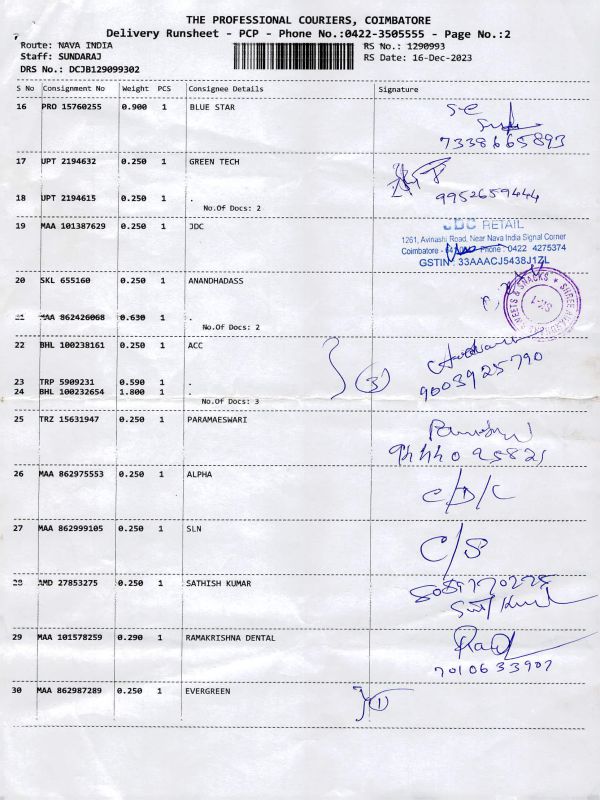 THE PROFESSIONAL COURIERS, COIMBATORE
Delivery Runsheet - PCP - Phone No.:0422-3505555 - Page No.:2
Route: NAVA INDIA RS No.: 1290993
Staff: SUNDARAJ RS Date: 16-Dec-2023
DRS No.: DCJB129099302
S No Consignment No Weight PCS Consignee Details Signature
16 PRO 15760255 0.900 1 BLUE STAR
7338665893
17 UPT 2194632 0.250 1 GREEN TECH
18 UPT 2194615 0.250 1 . 9952659444
No.Of Docs: 2
19 MAA 101387629 0.250 1 JDC
JDC RETAIL
1261, Avinashi Road, Near Nava India Signal Corner
Coimbatore - Phone : 0422 4275374
GSTIN : 33AAACJ5438J1ZL
20 SKL 655160 0.250 1 ANANDHADASS
21 MAA 862426068 0.630 1 .
No.Of Docs: 2
22 BHL 100238161 0.250 1 ACC
23 TRP 5909231 0.590 1 . 3 9003925790
24 BHL 100232654 1.800 1 .
No.Of Docs: 3
25 TRZ 15631947 0.250 1 PARAMAESWARI
26 MAA 862975553 0.250 1 ALPHA C/D/C
27 MAA 862999105 0.250 1 SLN C/S
28 AMD 27853275 0.250 1 SATHISH KUMAR
29 MAA 101578259 0.290 1 RAMAKRISHNA DENTAL
7010633907
30 MAA 862987289 0.250 1 EVERGREEN 1